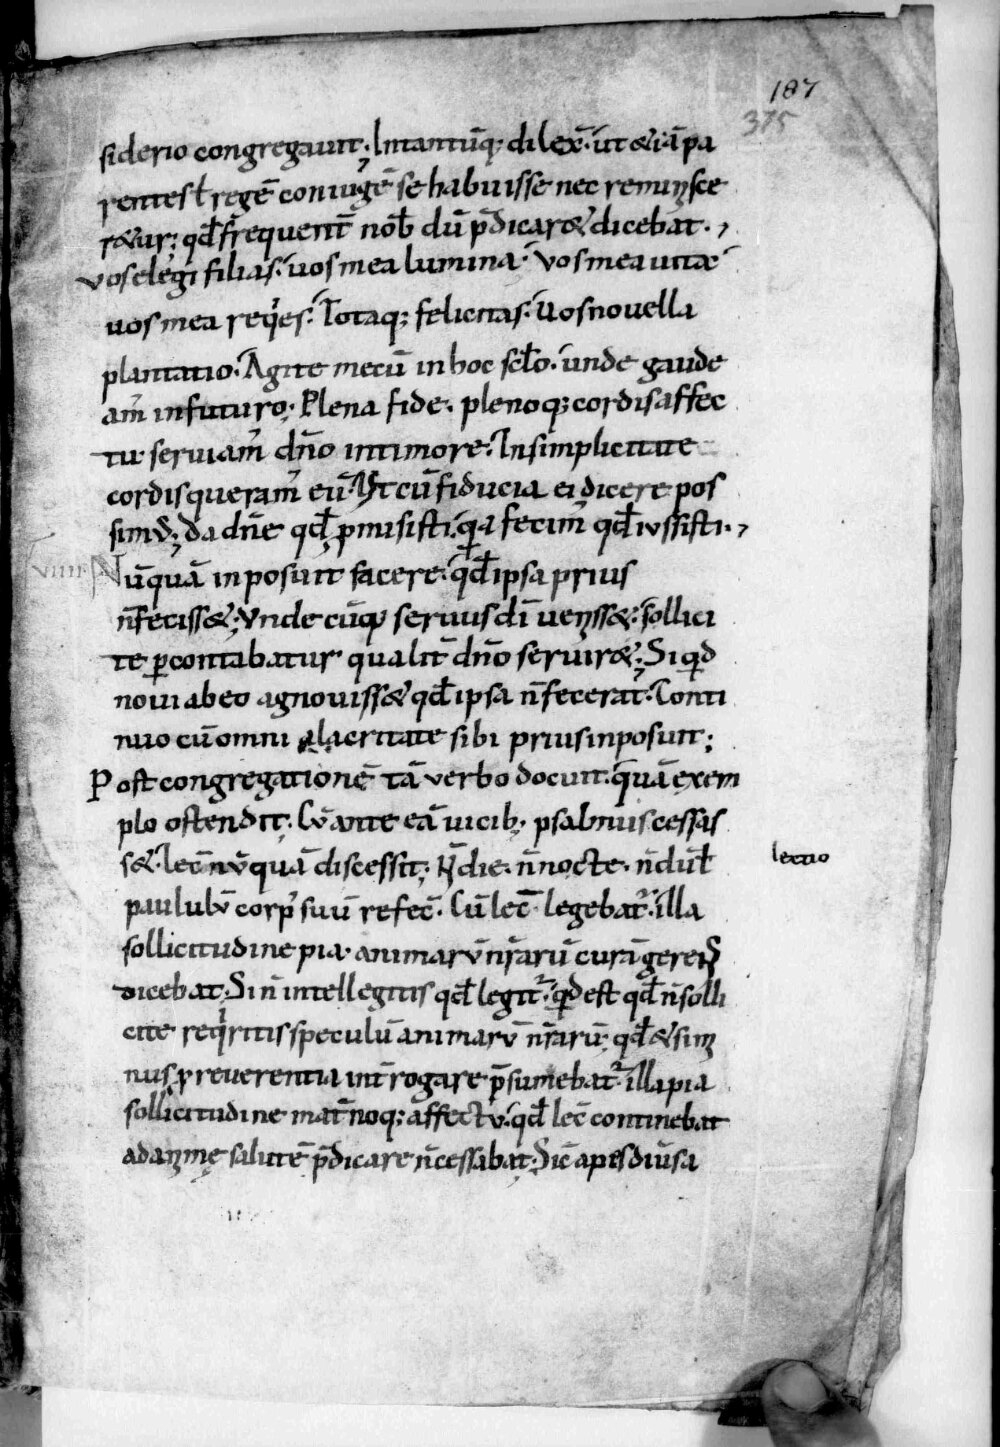 187
375
siderio congregauit; Intantū q; dilex̄· ut &iā pa
rentes ł regē coniugē se habuisse nec reminisce
r&ur; qđ frequent̄ nob̄ dū p̄dicar& dicebat·,
vos elegi filias· uos mea lumina· Vos mea uita
uos mea req̇es· Totaq; felicitas· Uos nouella
plantatio· Agite mecū in hoc scło· unde gaude
am̄ infuturo; Plena fide· plenoq; cordis affec
tu seruiam̄ dn̄o intimore· Insimplicitate
cordis queram̄ eū· Vt cū fiducia ei dicere pos
sim̄; da dn̄e qđ p̱misisti· q̇a fecim̄ qđ iussisti·,
VIIII Nūquā inposuit facere· qđ ipsa prius
n̄fecisset; Vnde cūq̇ seruus dī uenisset· solлici
te p̱contabatur qualit̄ dn̄o seruir&; Si q̇d
noui abeo agnouiss& qđ ipsa n̄fecerat· Conti
nuo cū omni alacritate sibi prius inposuit;
Post congregationē tā verbo docuit· quā exem
plo ostendit; Cū ante eā uicib; psalmus cessas
s&· lec̄ nūquā discessit; N̄ die· n̄ nocte· n̄ dul̄
paulubū corp̄ suū refec̄· Cū lec̄ legebat̄· illa
sollicitudine pia· animarū nr̄arū curā gerens
dicebat· Si n̄ intellegitis qđ legit̄· q̇d est qđ n̄ solli
cite req̇ritis speculū animarū nr̄arū; qđ &sim
nus p̱ reuerentia int̄rogare p̄sumebat̄· illa pia
sollicitudine mat̄noq; affectu· qđ lec̄ continebat
ad anime salutē p̄dicare n̄cessabat; Sic̄ apis diūsa
lectio